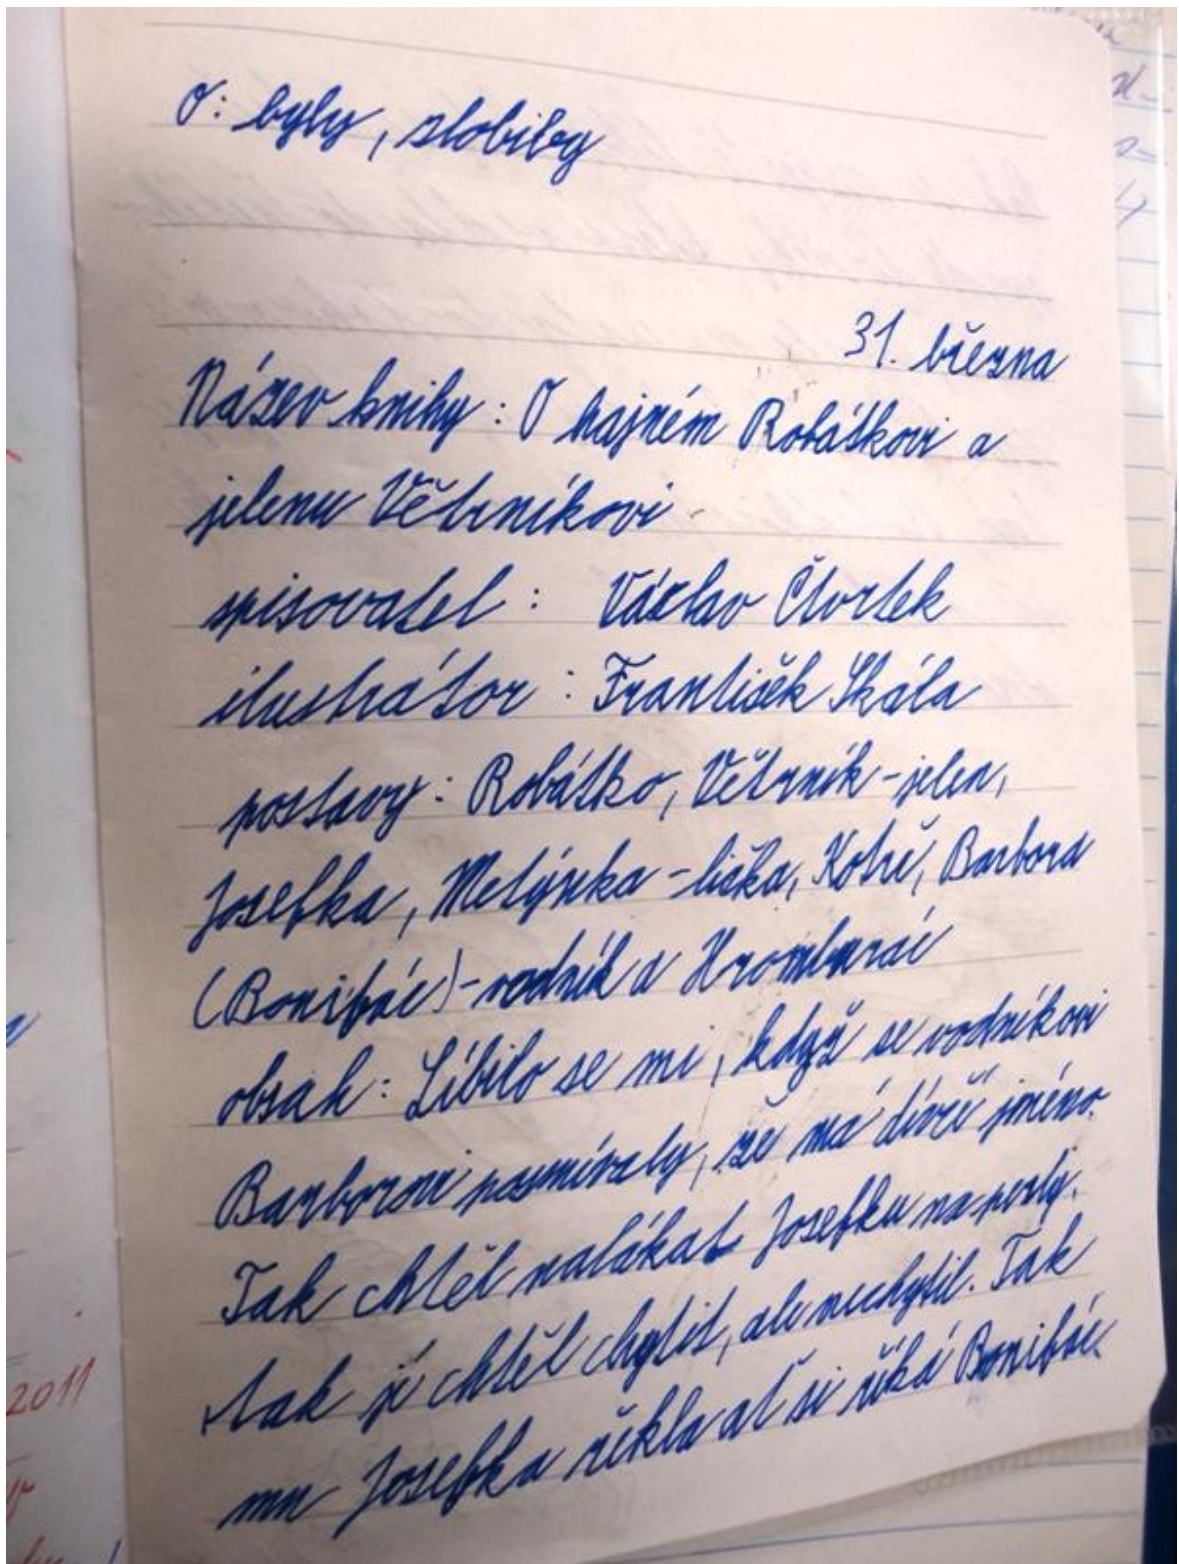 O: byly, zlobily
31. března
Název knihy: O hajném Robátkovi a
jelenu Větrníkovi
spisovatel: Václav Čtvrtek
ilustrátor: František Skála
postavy: Robátko, Větrník - jelen,
Josefka, Metýnka - liška, Kotrč, Barbora
(Bonifác) - vodník a Hromburác
obsah: Líbilo se mi, když se vodníkovi
Barborovi posmívaly, že má dívčí jméno.
Tak chtěl nalákat Josefku na perly.
tak ji chtěl chytit, ale nechytil. Tak
mu Josefka řekla ať si říká Bonifác.
2011